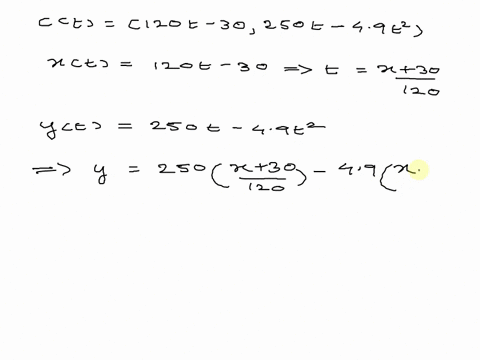 c(t) = (120t - 30, 250t - 4.9t²)
x(t) = 120t - 30 => t = (x+30)/120
y(t) = 250t - 4.9t²
=> y = 250((x+30)/120) - 4.9(x